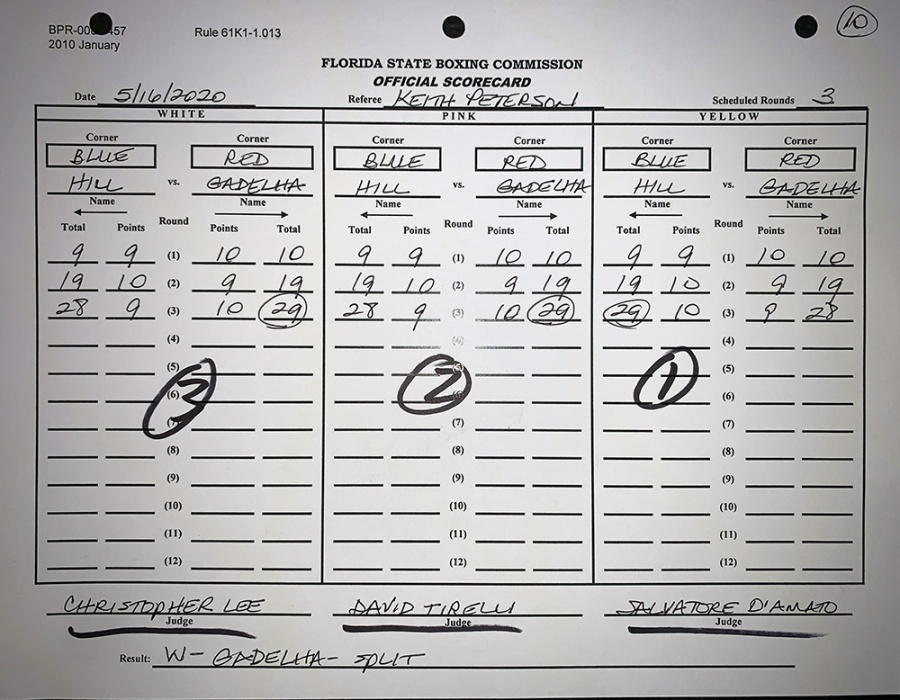 BPR-00 457 Rule 61K1-1.013 10
2010 January
FLORIDA STATE BOXING COMMISSION
OFFICIAL SCORECARD
Date 5/16/2020 Referee KEITH PETERSON Scheduled Rounds 3
WHITE PINK YELLOW
Corner Corner Corner Corner Corner Corner
BLUE RED BLUE RED BLUE RED
HILL vs. GADELHA HILL vs. GADELHA HILL vs. GADELHA
Name Name Name Name Name Name
Total Points Round Points Total Total Points Round Points Total Total Points Round Points Total
9 9 (1) 10 10 9 9 (1) 10 10 9 9 (1) 10 10
19 10 (2) 9 19 19 10 (2) 9 19 19 10 (2) 9 19
28 9 (3) 10 29 28 9 (3) 10 29 29 10 (3) 9 28
(4) (4) (4)
(5) (5)
(6) (6)
3 2 1
(7) (7)
(8) (8) (8)
(9) (9) (9)
(10) (10) (10)
(11) (11) (11)
(12) (12) (12)
CHRISTOPHER LEE DAVID TIRELLI SALVATORE D'AMATO
Judge Judge Judge
Result: W- GADELHA- SPLIT